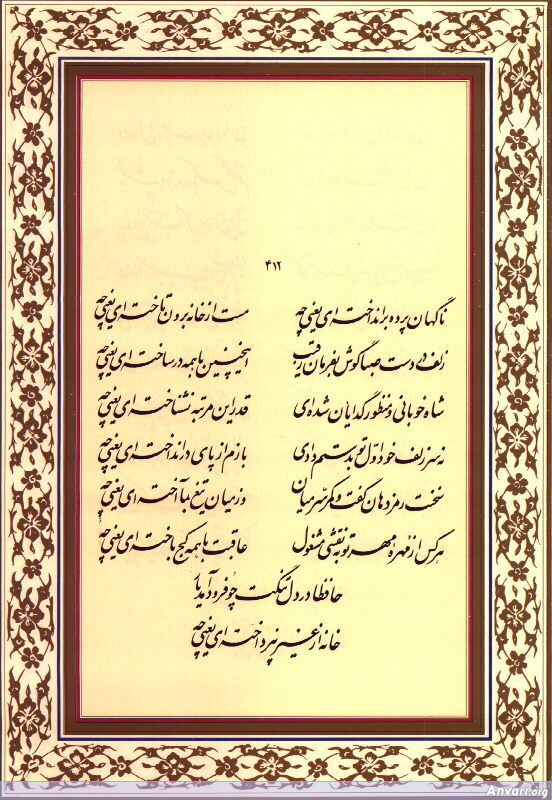 ۴۱۲
ناگهان پرده برانداخته‌ای یعنی چه مست از خانه برون تاخته‌ای یعنی چه
زلف در دست صبا گوش بفرمان رقیب اینچنین با همه در ساخته‌ای یعنی چه
شاه خوبانی و منظور گدایان شده‌ای قدر این مرتبه نشناخته‌ای یعنی چه
نه سر زلف خود اول تو بدستم دادی بازم از پای درانداخته‌ای یعنی چه
سخنت رمز دهان گفت و کمر سر میان وز میان تیغ بما آخته‌ای یعنی چه
هر کس از مهره مهر تو به نقشی مشغول عاقبت با همه کج باخته‌ای یعنی چه
حافظا در دل تنگت چو فرود آمد یار
خانه از غیر نپرداخته‌ای یعنی چه
Anvari.org